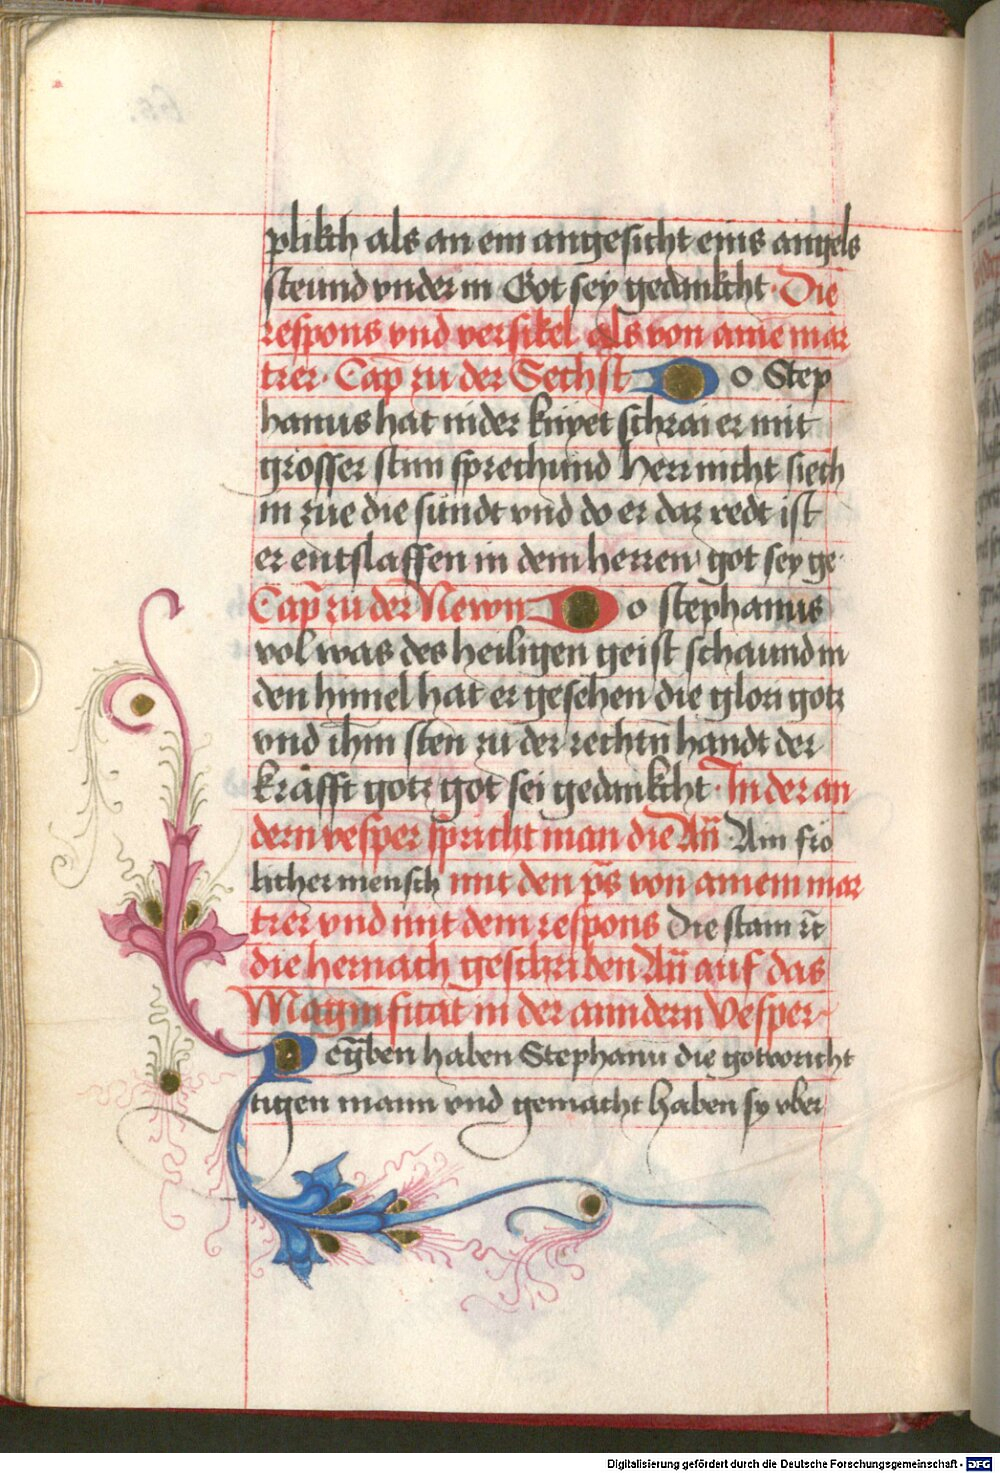 plikch als an em angesicht eins angels
steund vnder in Got sey gedankcht · Die
respons vnd versikel als von aine mar
trer · Cap zu der Sechst Do Step
hanus hat nider knyet schrai er mit
grosser stim sprechund Herr nicht siech
in zue die sündt vnd do er daz redt ist
er entslaffen in dem herren got sey ge·
Cap̃ zu der Newn Do stephanus
vol was des heiligen geist schaund in
den himel hat er gesehen die glori gotz
vnd ihm sten zu der rechtn handt der
kräfft gotz got sei gedankcht · In der an
dern vesper spricht man die An̄ Ain frö
licher mensch mit den ps von ainem mar
trer vnd mit dem respons Die stain
die hernach geschriben An̄ auf das
Magnificat in der anndern Vesper
haben Stephanū die gotvoricht
tigen mann vnd gemacht haben sy vber
Digitalisierung gefördert durch die Deutsche Forschungsgemeinschaft - DFG